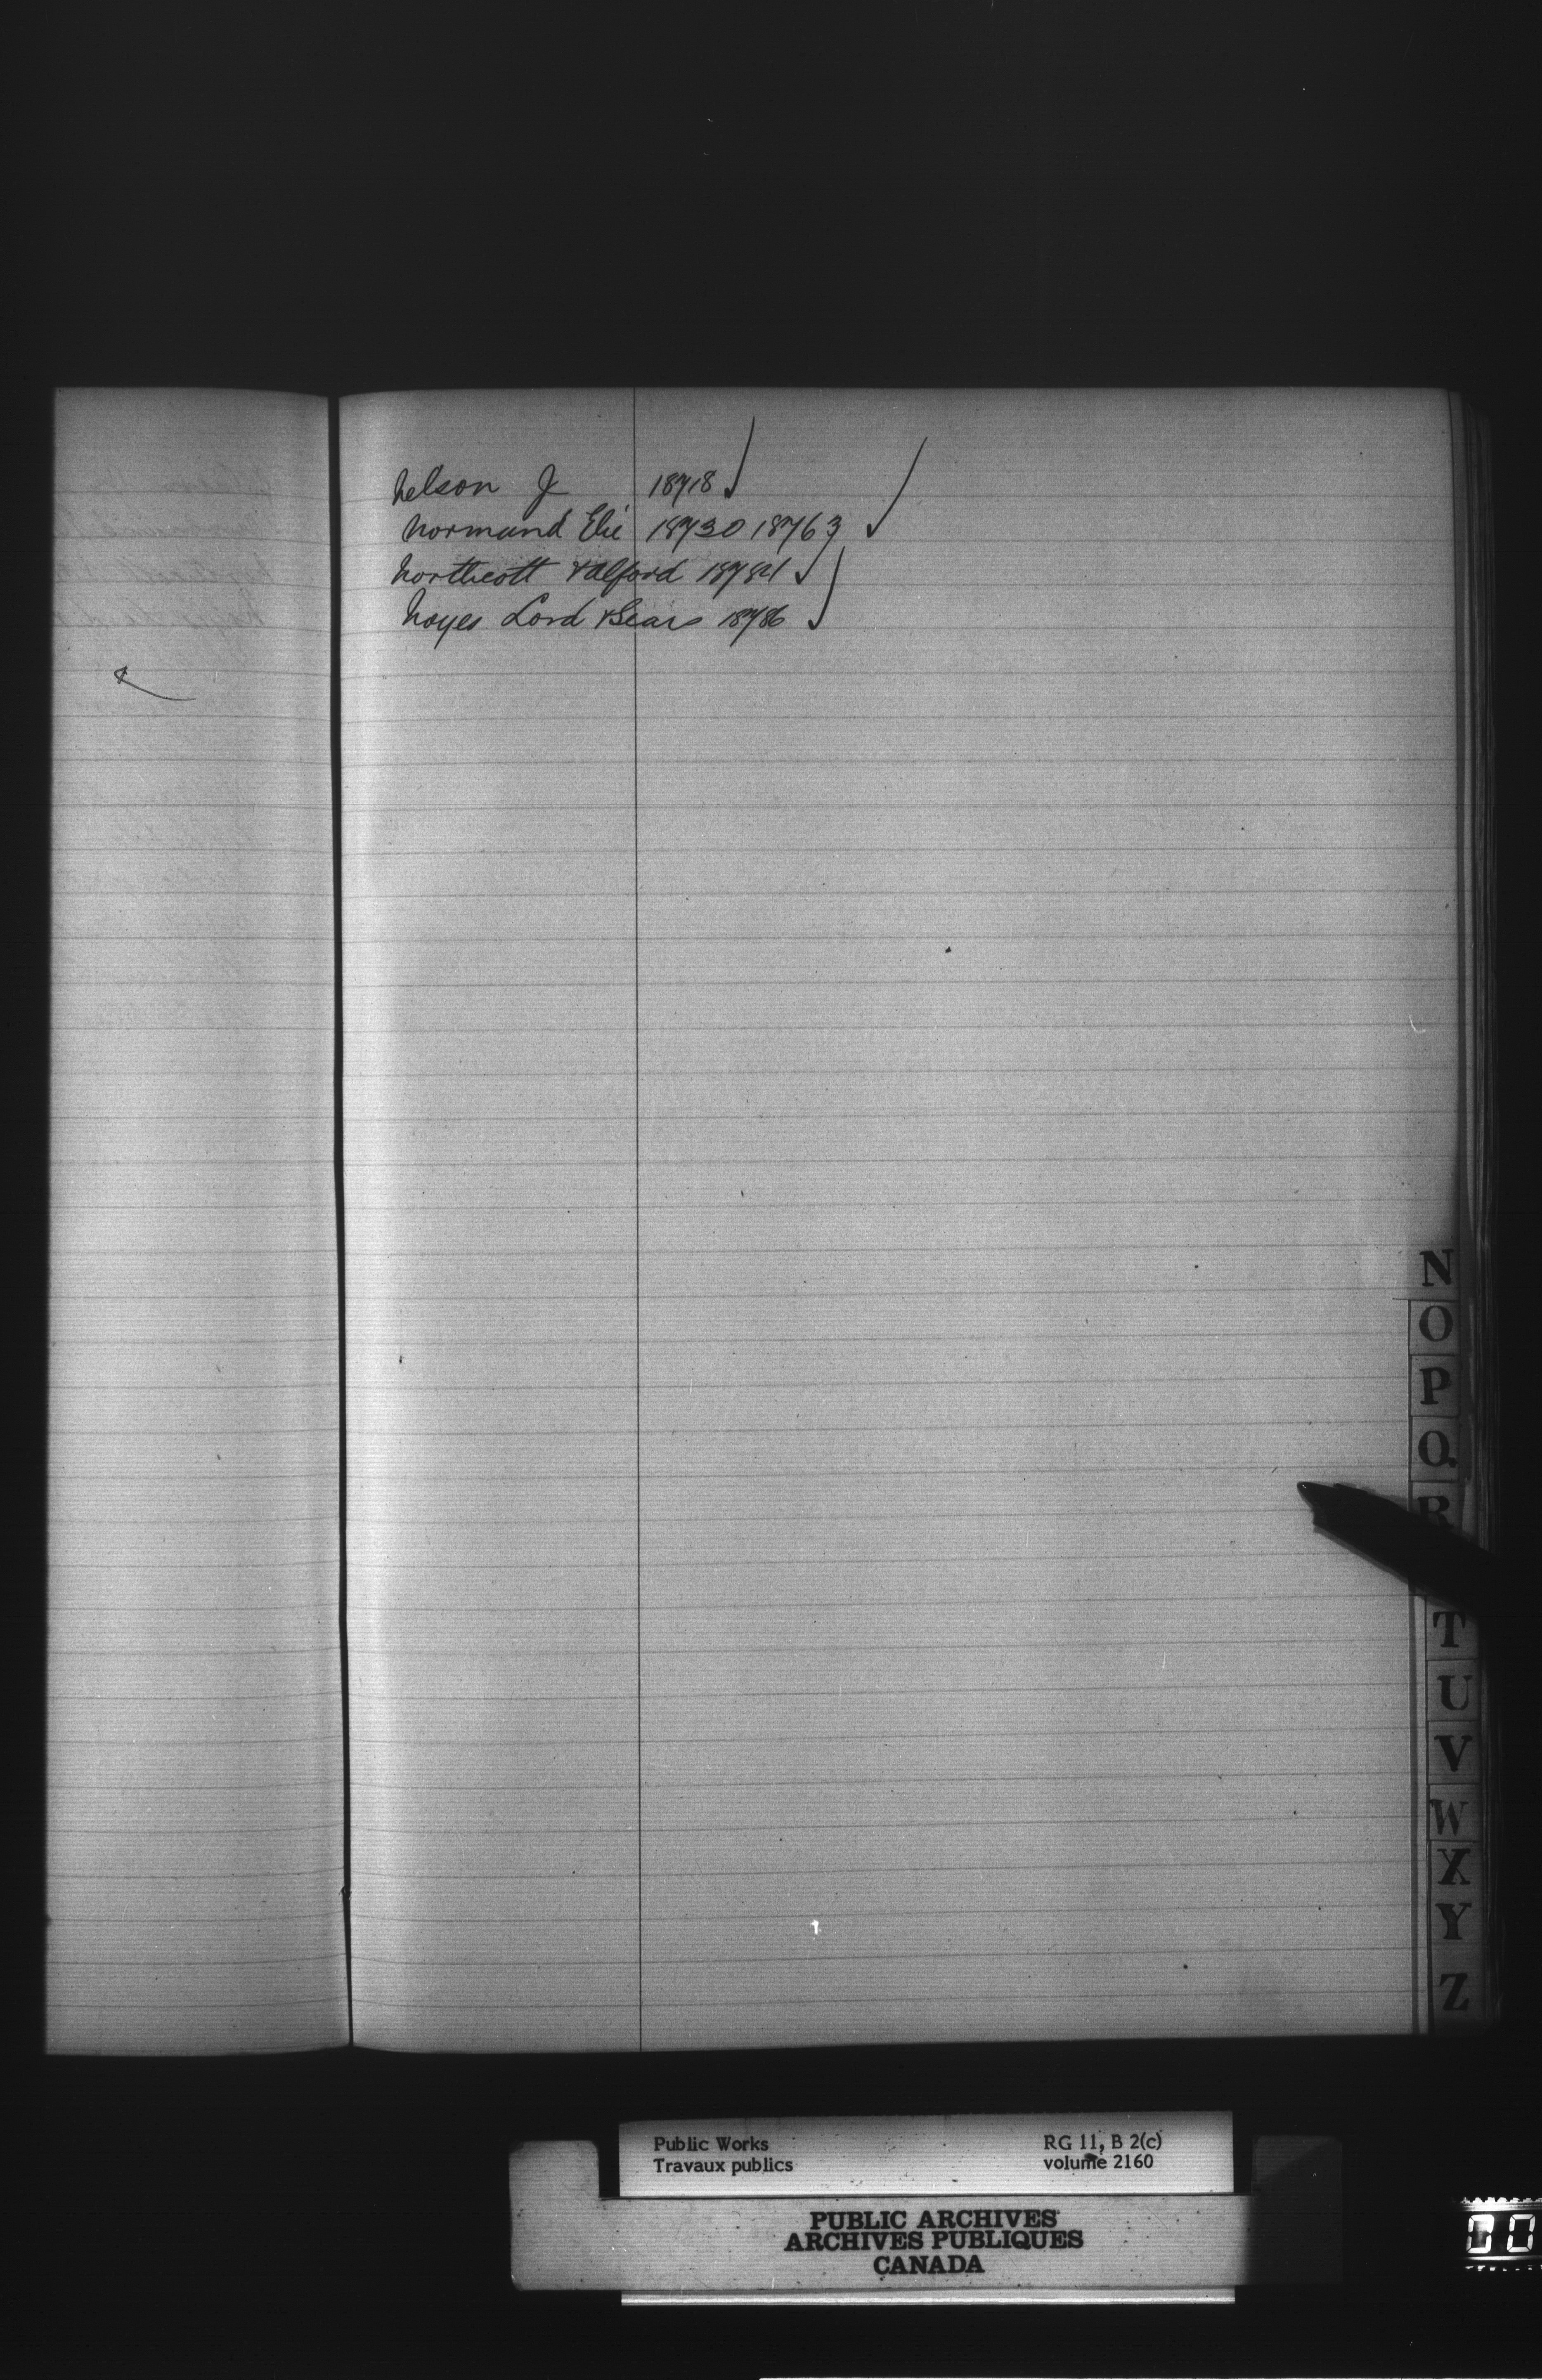 Nelson J 18718 √
Normand Elie 18730 18763 √
Northcott & Alford 18784 √
Noyes Lord & Sears 18786 √
N
O
P
Q
R
T
U
V
W
X
Y
Z
Public Works RG 11, B 2(c)
Travaux publics volume 2160
PUBLIC ARCHIVES
ARCHIVES PUBLIQUES
CANADA
00